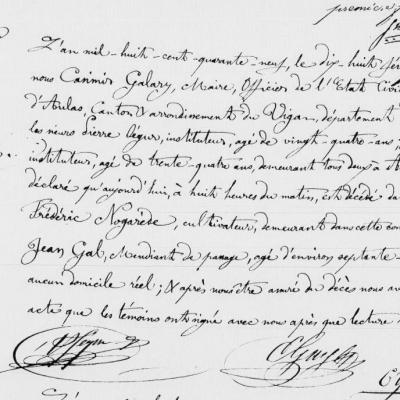 L'an mil-huit-cent-quarante-neuf, le dix-huit fév
nous Casimir Galary, Maire, Officier de l'Etat Civi
d'Aulas, Canton & arrondissement du Vigan, département
les sieurs Pierre Ségur, instituteur, agé de vingt-quatre ans,
instituteur, agé de trente-quatre ans, demeurant tous deux à A
déclaré qu'aujourd'hui, à huit heures du matin, est décédé da
Frédéric Nogarède, cultivateur, demeurant dans cette com
Jean Gal, Mendiant de passage, agé d'environ septante-
aucun domicile réel; & après nous être assuré du décès nous av
acte que les témoins ont signé avec nous après que lecture